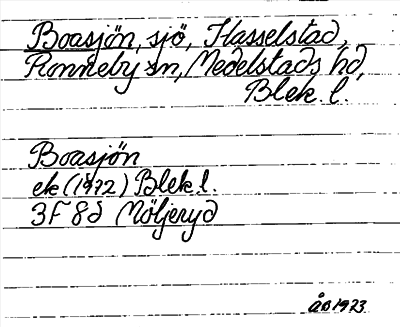 Boasjön, sjö, Hasselstad,
Ronneby sn, Medelstads hd,
Blek. l.
Boasjön
ek (1972) Blek. l.
3F 8d Möljeryd
ÅB 1973